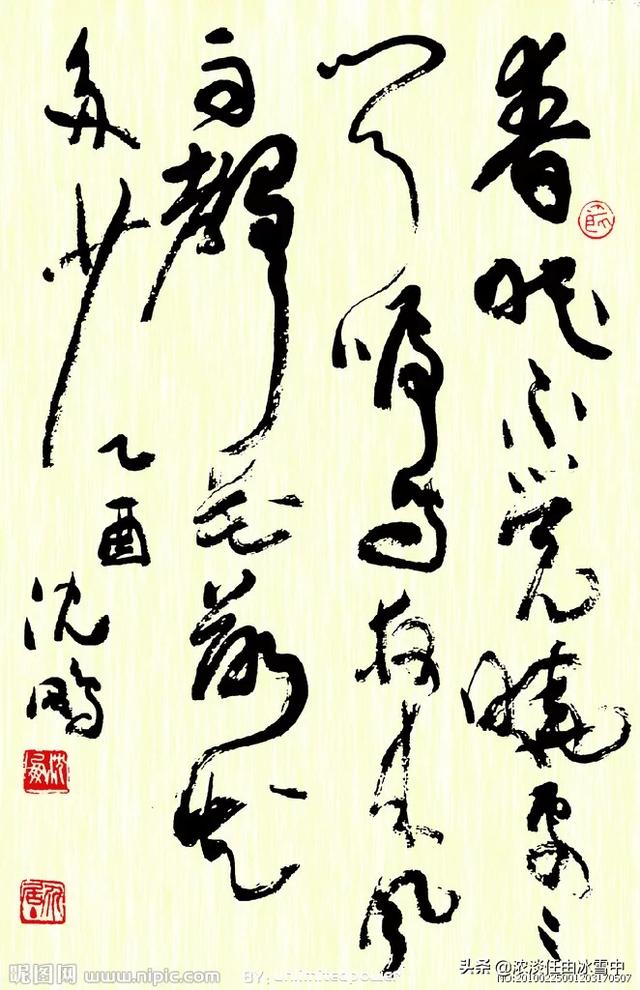 春眠不覺曉處々
聞啼鳥夜來風
雨聲花落知
多少
乙酉
沈鵬
昵图网 www.nipic.com
BY: unlimitedpower
头条 @浓淡任由冰雪中
NO:20100225001203170507